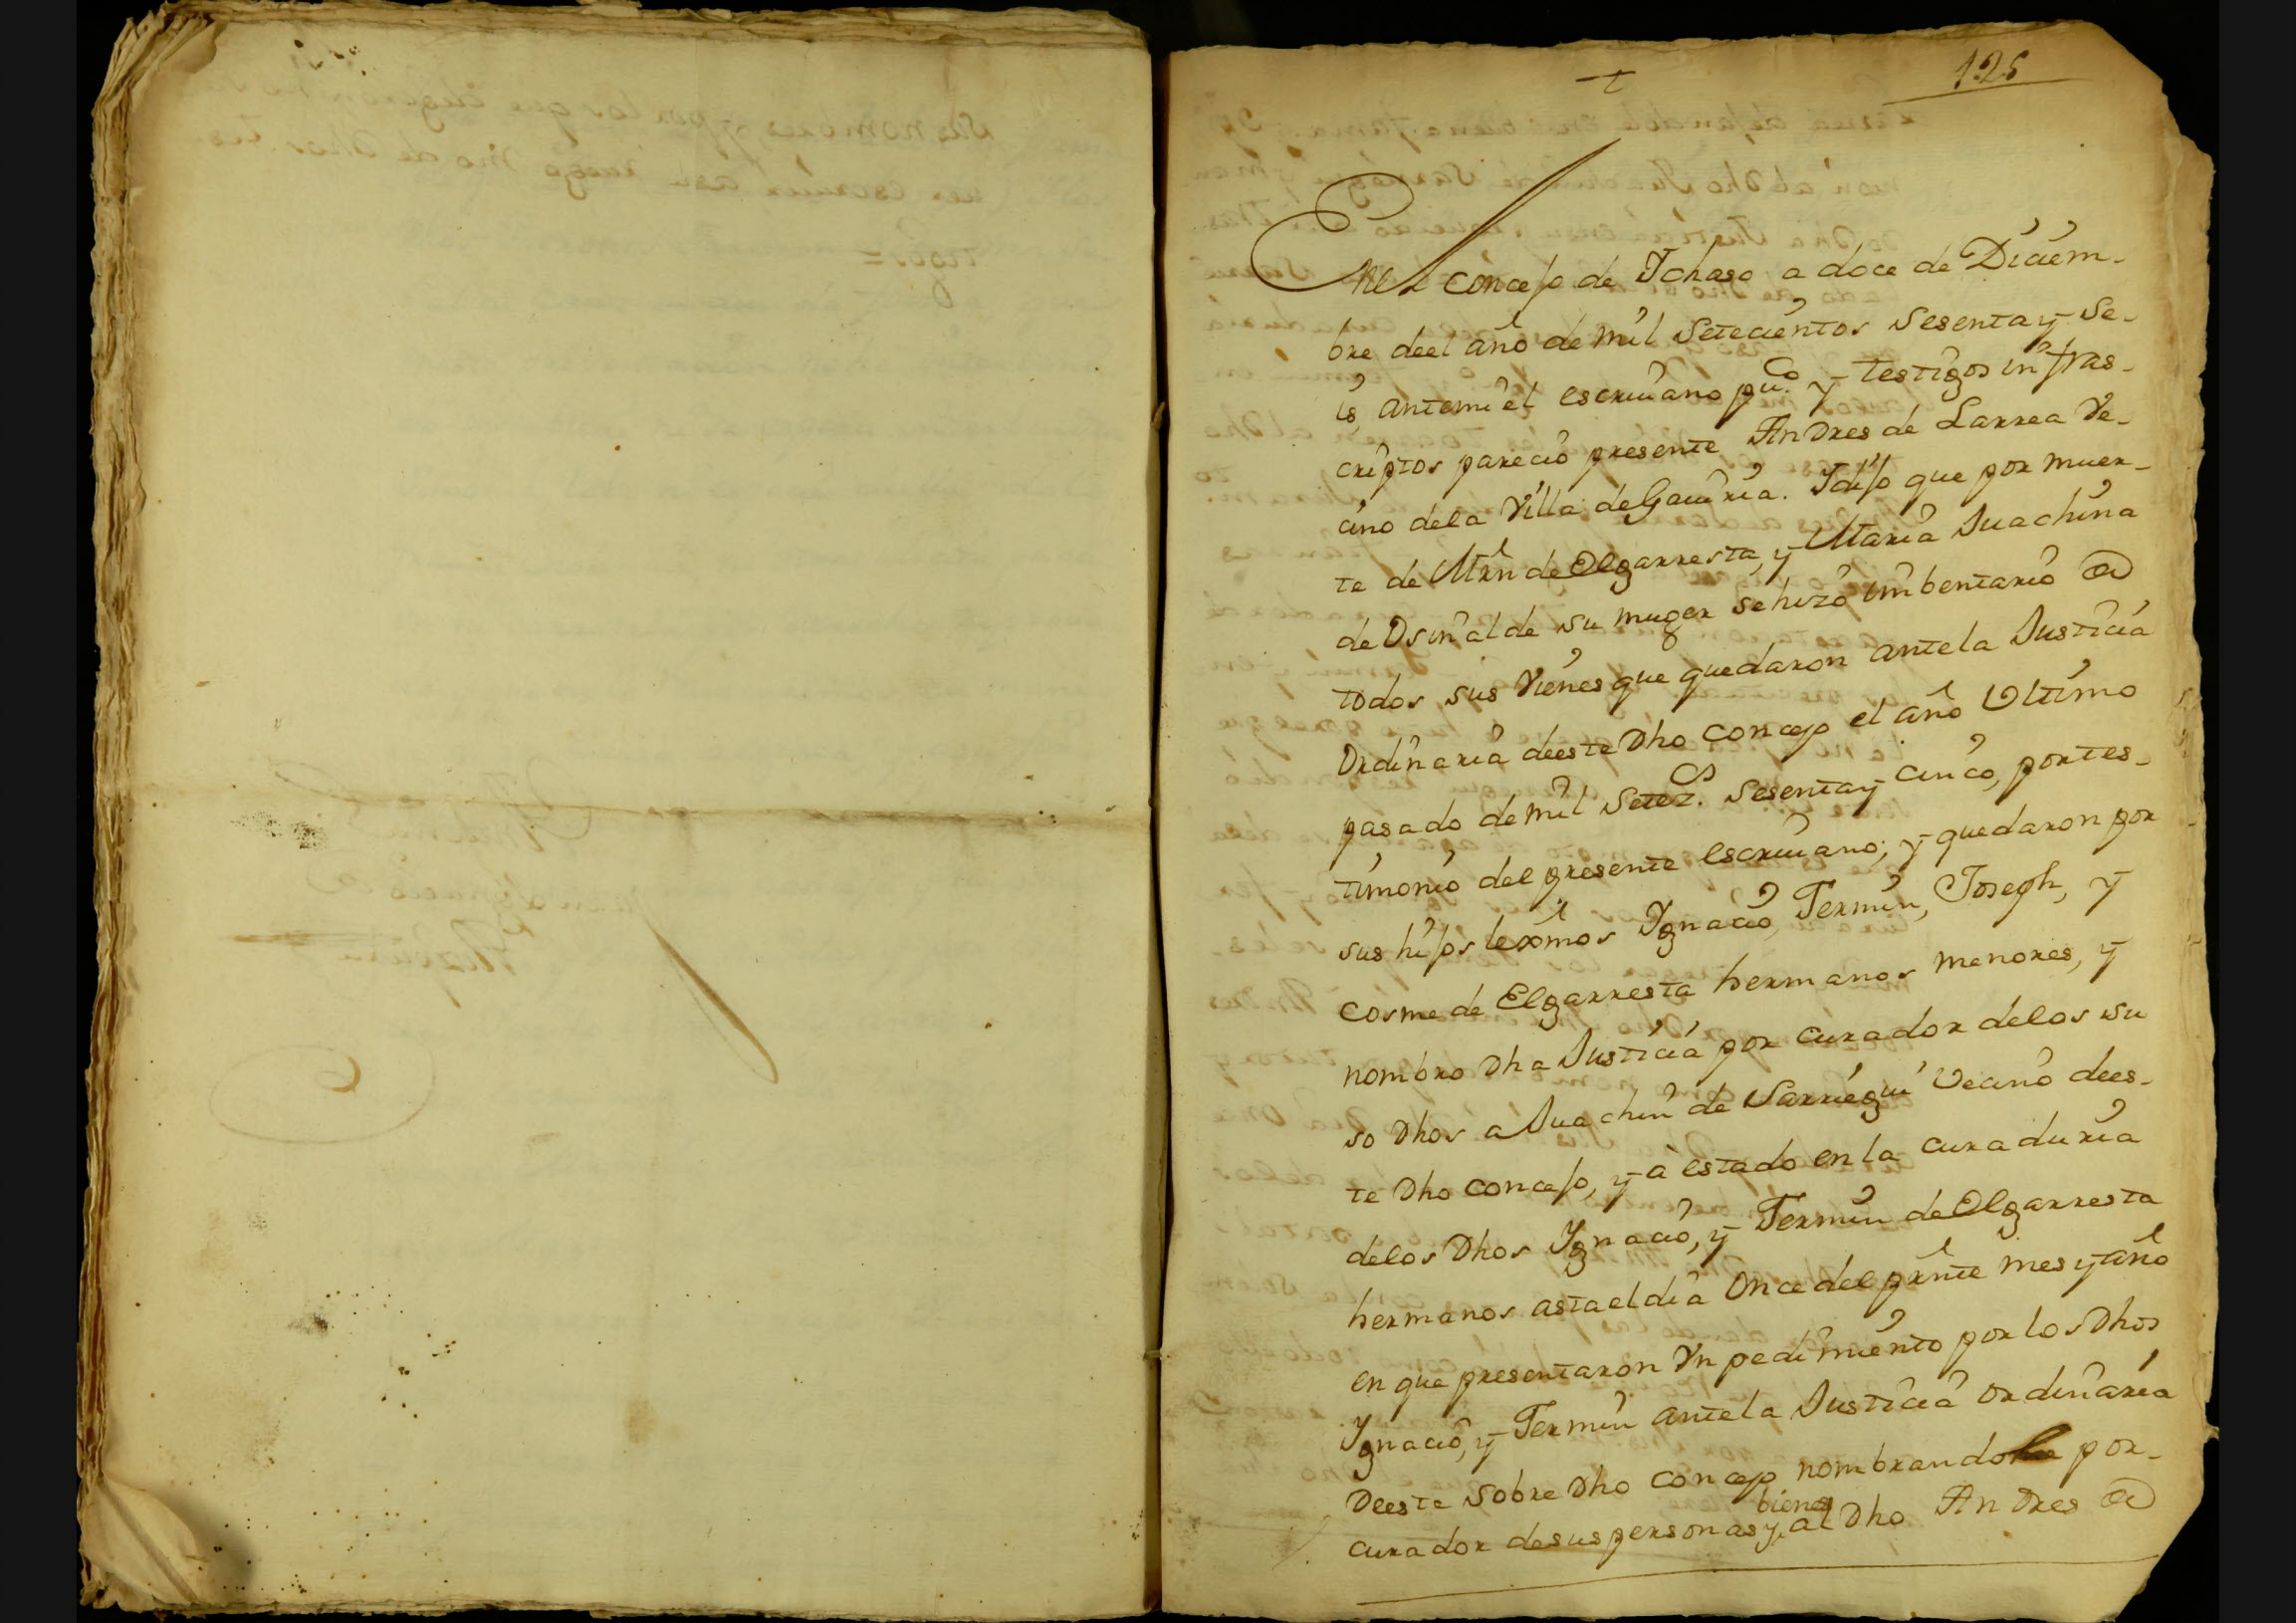 125
En el concejo de Ychaso a doce de Diciem-
bre de el año de mil Setecientos Sesenta y Se-
is, antemi el escriuano pu.co y testigos infras-
criptos parecio presente Andres de Larrea Ve-
cino dela Villa de Gauiria. Y dijo que por muer-
te de Mrn de Elgarresta, y Maria Juachina
de Osinalde su muger se hizo imbentario de
todos sus Vienes que quedaron antela Justicia
Ordinaria deeste Dho concejo el año Vltimo
pasado de mil Setez.os Sesenta y cinco, por tes-
timonio del presente escriuano; y quedaron por
sus hijos lexmos Ygnacio, Fermin, Joseph, y
Cosme de Elgarresta hermanos menores, y
nombro Dha Justicia por curador delos su
so Dhos a Juachin de Sarriegui Vecino dees-
te Dho concejo, y a estado en la curaduria
delos Dhos Ygnacio, y Fermin de Elgarresta
hermanos asta el dia Once del prnte mes y año
en que presentaron Vn pedimiento por los Dhos
Ygnacio, y Fermin antela Justicia ordinaria
Deeste Sobre Dho concejo nombrando por-
bienes
curador de sus personas y al Dho Andres de